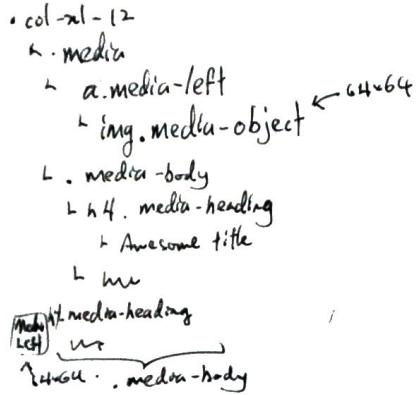 . col-xl-12
. media
a.media-left
img.media-object ← 64x64
. media-body
h4. media-heading
Awesome title
Media Left h4.media-heading
64x64 . media-body